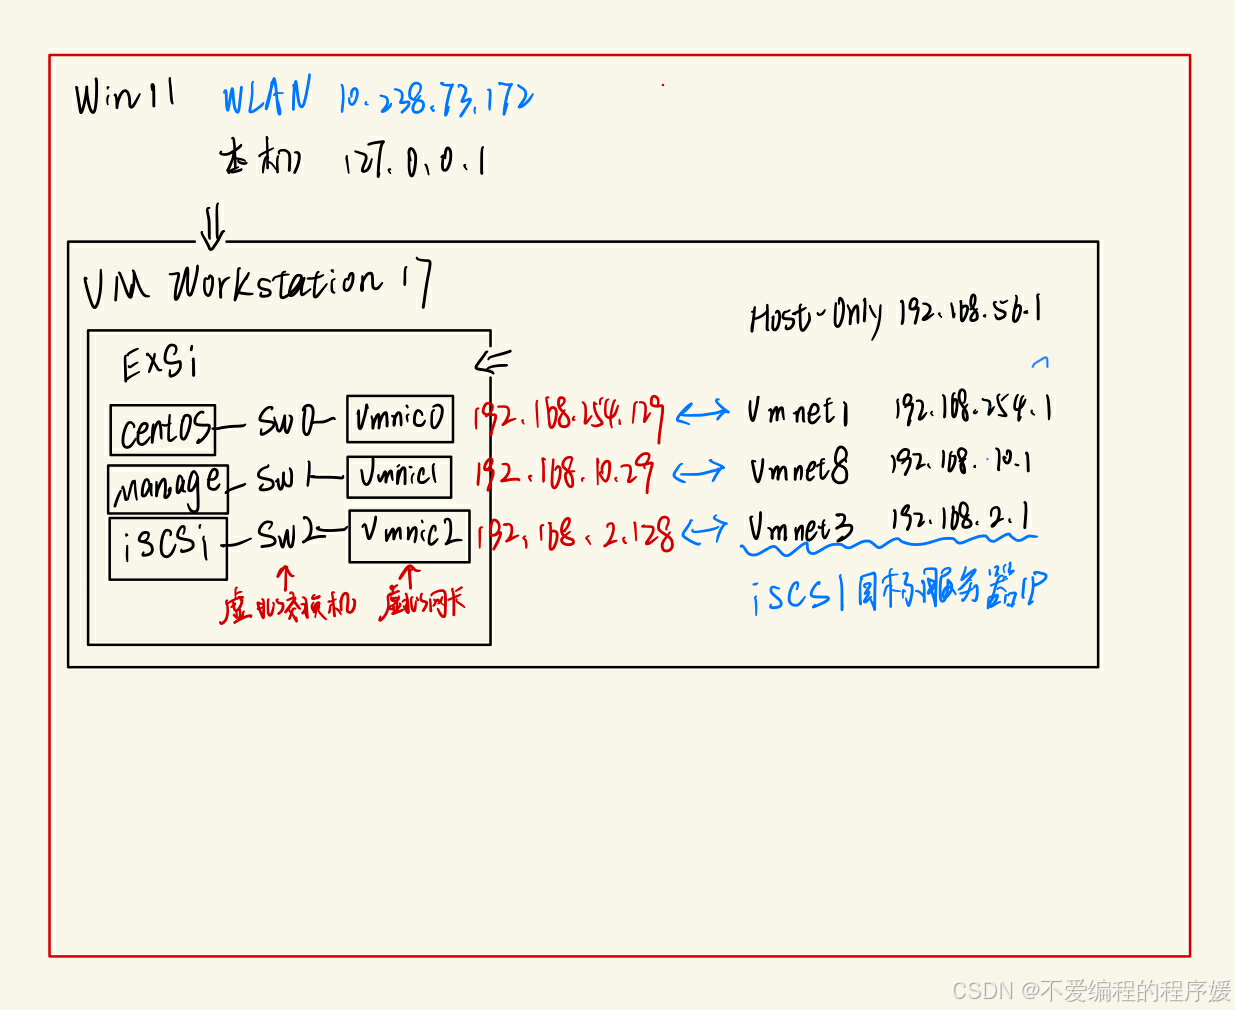 Win11 WLAN 10.238.73.172
本机 127.0.0.1
VM Workstation 17
Host-Only 192.168.56.1
EXSi
centOS SW0 Vmnic0 192.168.254.129 Vmnet1 192.168.254.1
manage SW1 Vmnic1 192.168.10.29 Vmnet8 192.168.10.1
iSCSi SW2 Vmnic2 192.168.2.128 Vmnet3 192.168.2.1
虚拟交换机 虚拟网卡 iSCSI目标服务器IP
CSDN @不爱编程的程序媛